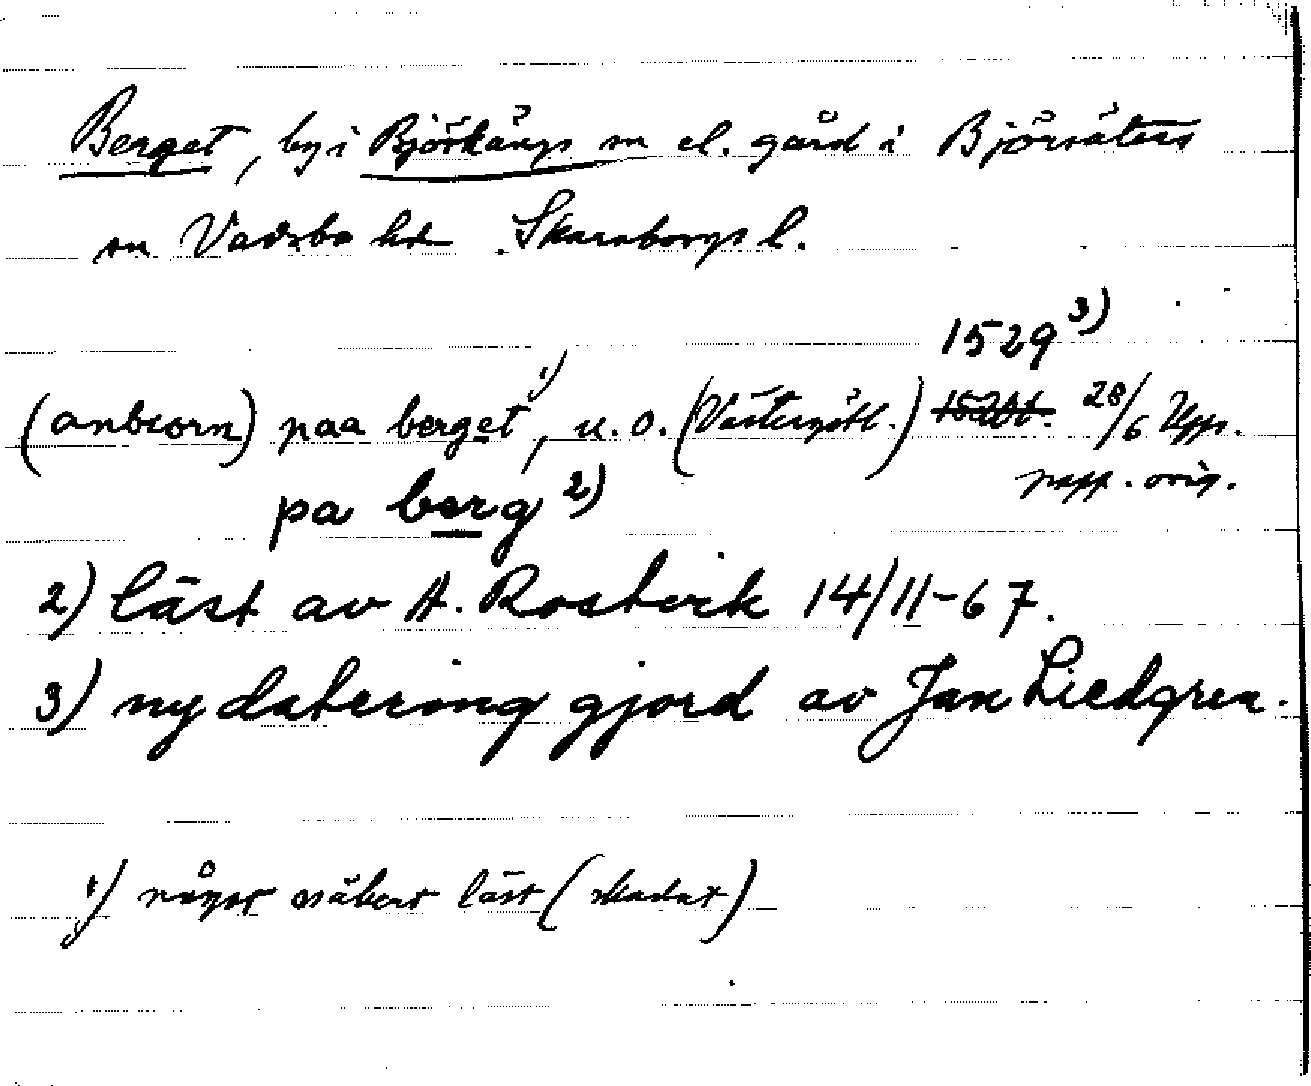 Berget, by i Björkängs sn el. gård i Björsäters
sn Vadsbo hd. Skaraborgs l.
1529 3)
(anbiorn) paa berget 1), u. o. (Västergötl.) 28/6 Upps.
papp. orig.
pa berg 2)
2) läst av A. Rostvik 14/11-67.
3) ny datering gjord av Jan Liedgren.
1) något osäkert läst (skadat)